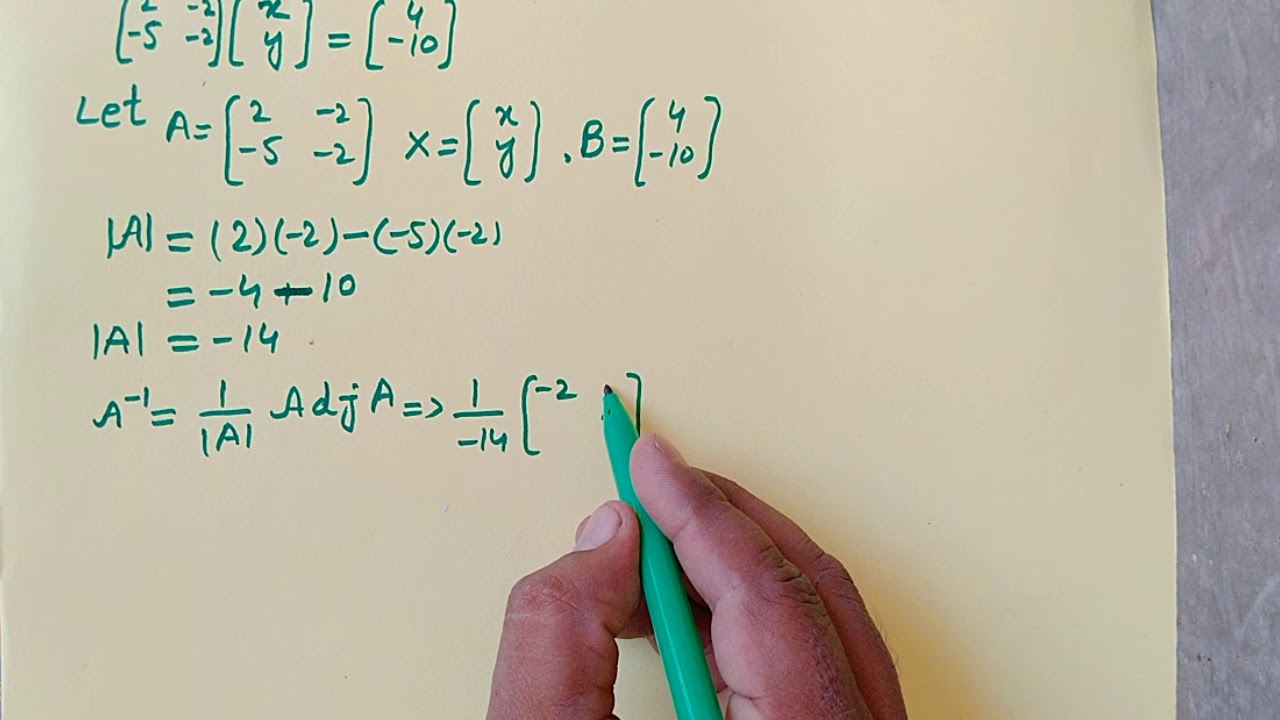 [2 -2 -5 -2] [x y] = [4 -10]
Let A = [2 -2 -5 -2] X = [x y] , B = [4 -10]
|A| = (2)(-2)-(-5)(-2)
= -4 - 10
|A| = -14
A⁻¹ = 1/|A| Adj A => 1/-14 [-2